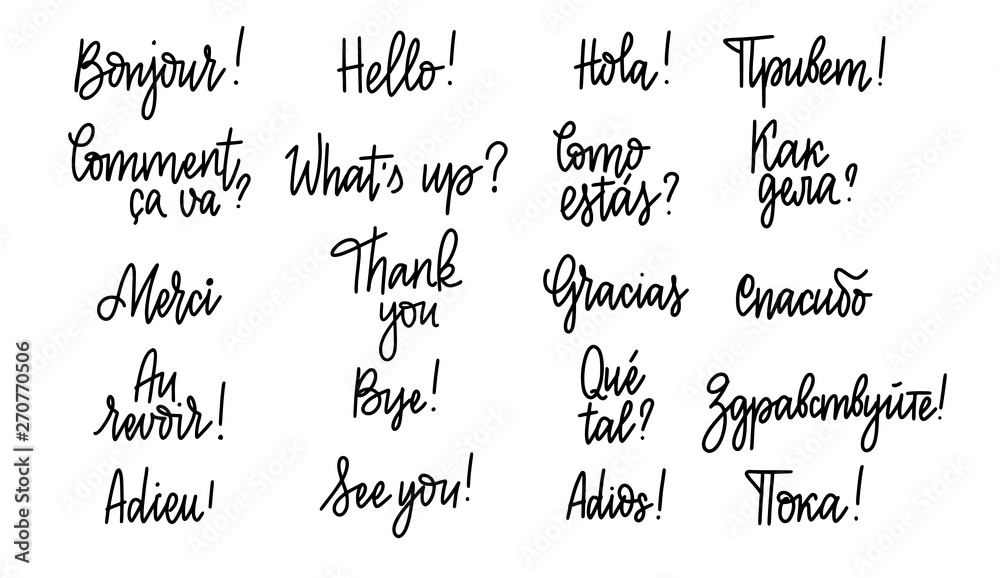 Bonjour!
Hello!
Hola!
Привет!
Comment
ça va?
What's up?
Como
estás?
Как
дела?
Merci
Thank
you
Gracias
Спасибо
Au
revoir!
Bye!
Qué
tal?
Здравствуйте!
Adieu!
See you!
Adios!
Пока!
Adobe Stock | #270770506